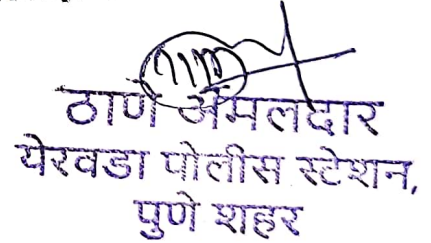 ठाणे अंमलदार
येरवडा पोलीस स्टेशन,
पुणे शहर